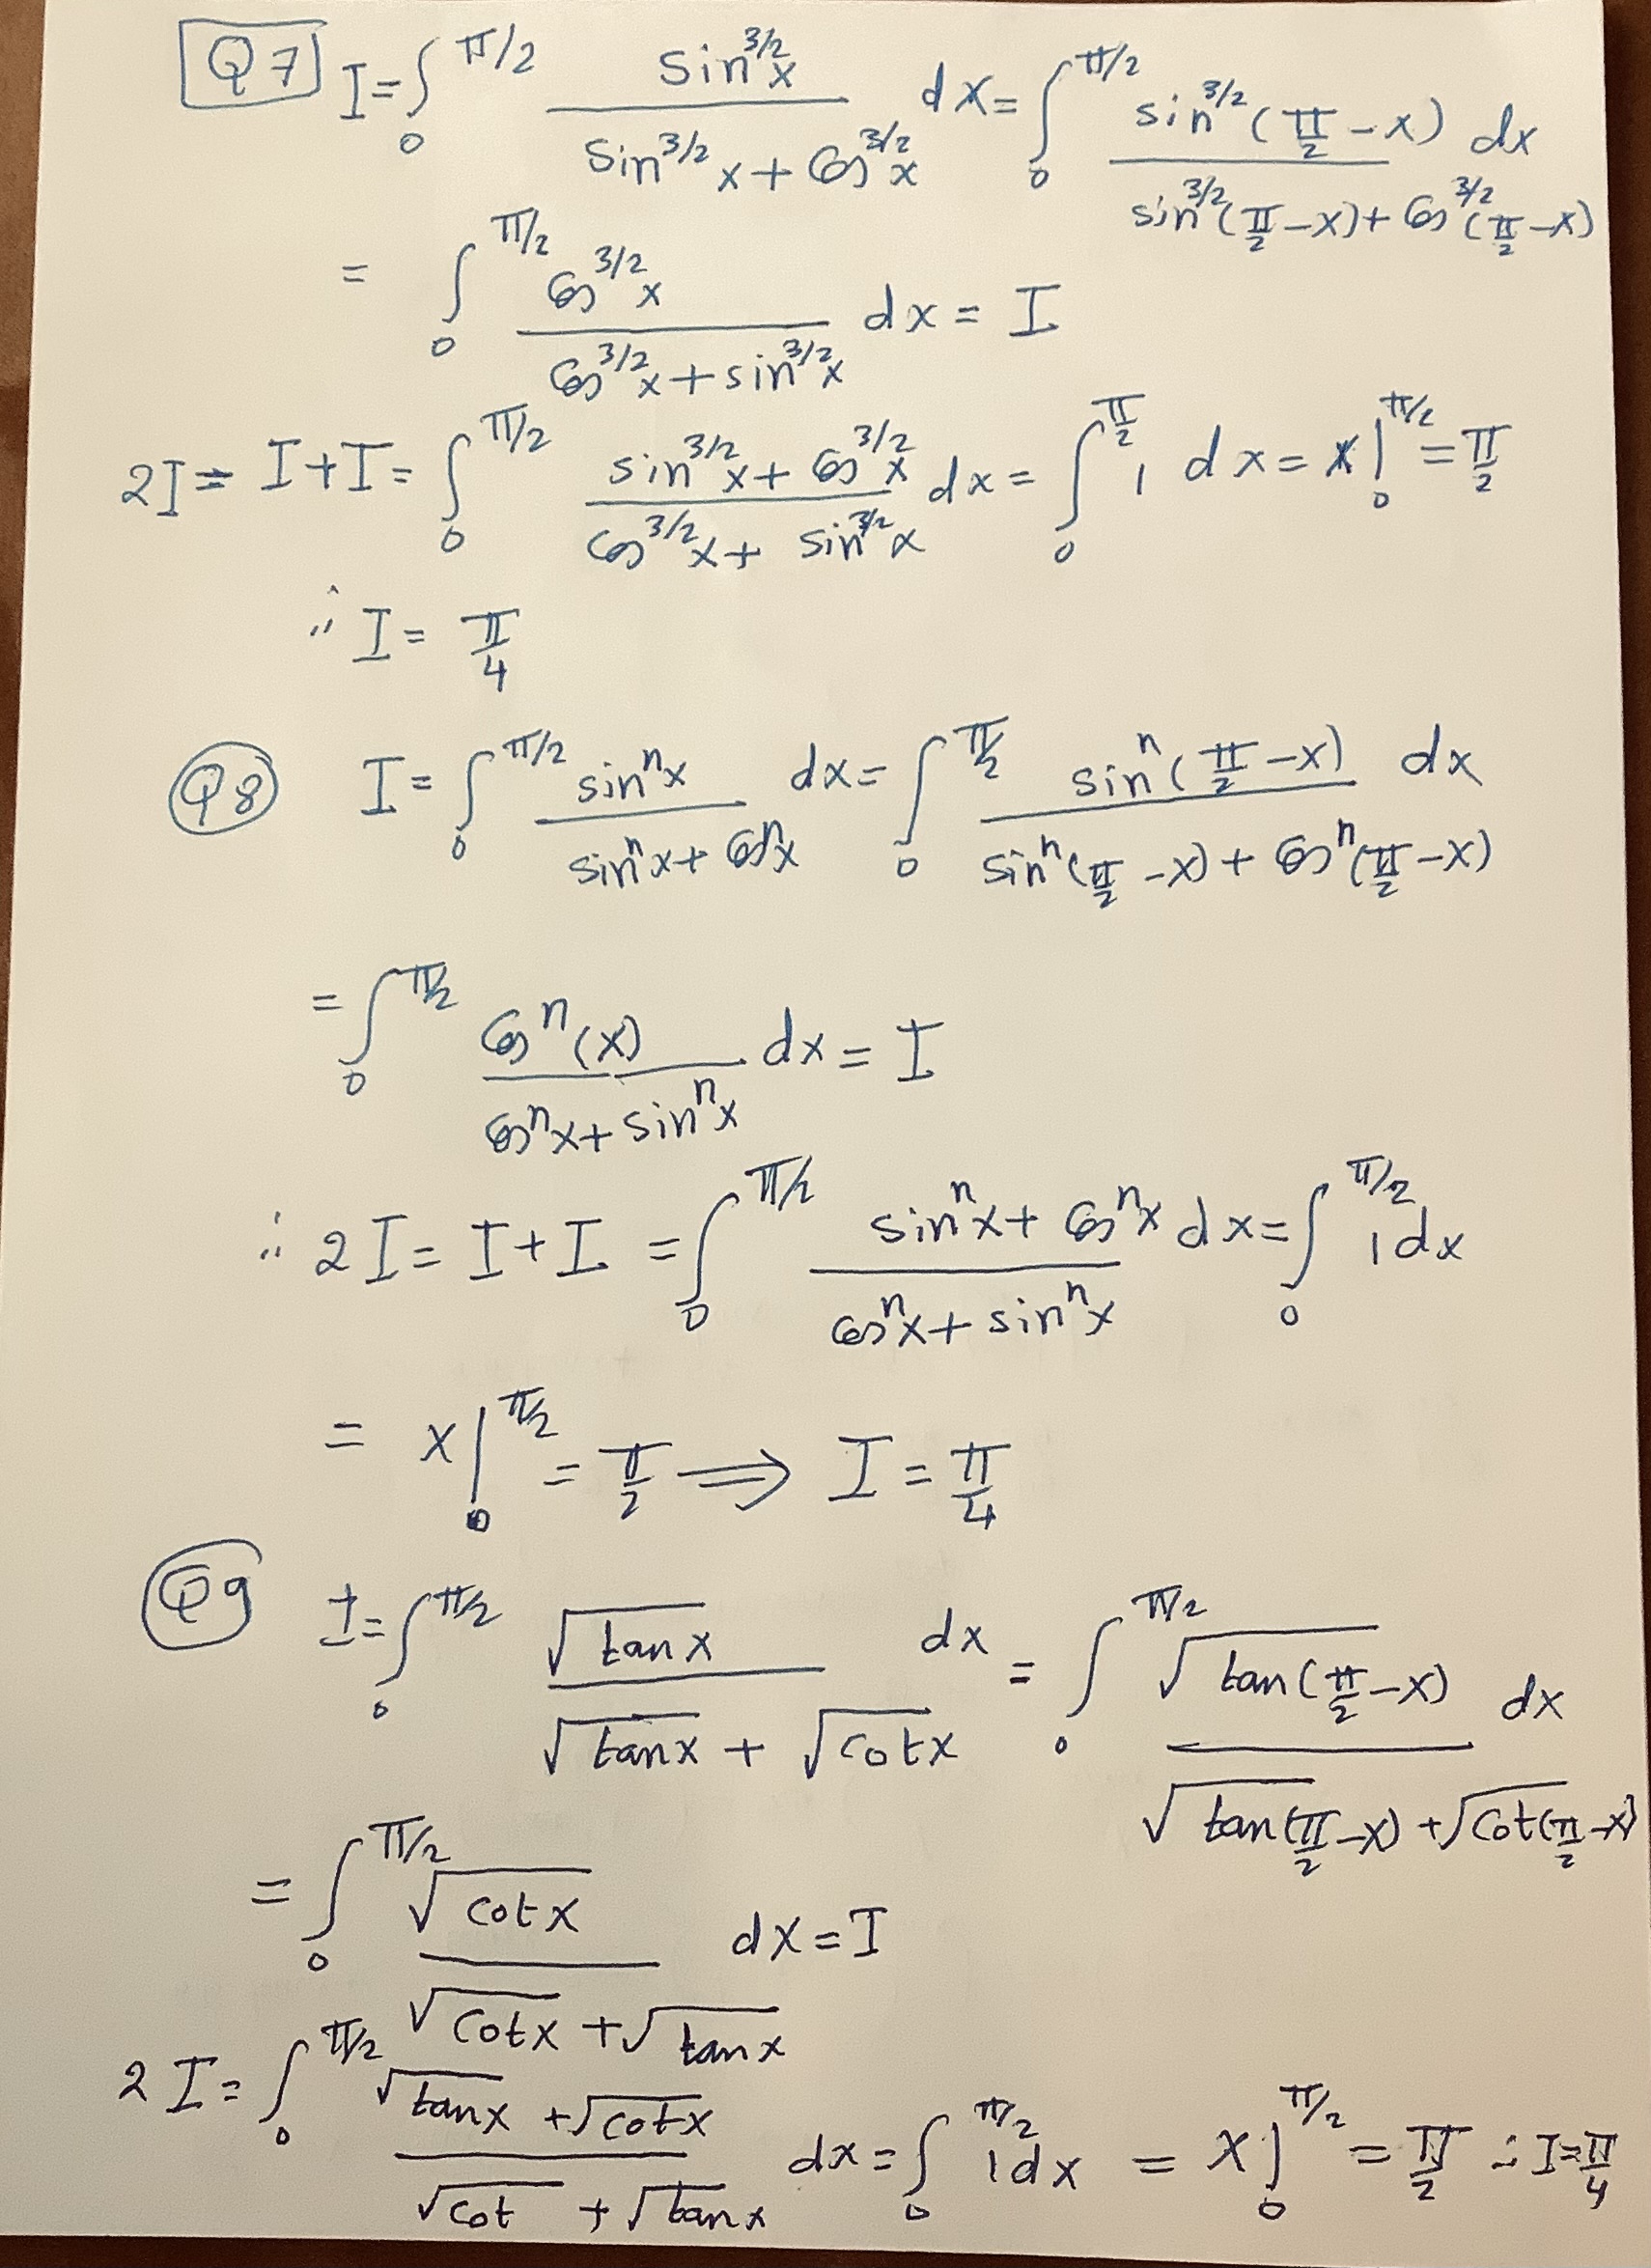 Q7 I = ∫₀^(π/2) sin^(3/2)x / (sin^(3/2)x + cos^(3/2)x) dx = ∫₀^(π/2) sin^(3/2)(π/2 - x) / (sin^(3/2)(π/2 - x) + cos^(3/2)(π/2 - x)) dx
= ∫₀^(π/2) cos^(3/2)x / (cos^(3/2)x + sin^(3/2)x) dx = I
2I = I + I = ∫₀^(π/2) (sin^(3/2)x + cos^(3/2)x) / (cos^(3/2)x + sin^(3/2)x) dx = ∫₀^(π/2) 1 dx = x|₀^(π/2) = π/2
∴ I = π/4
Q8 I = ∫₀^(π/2) sin^n x / (sin^n x + cos^n x) dx = ∫₀^(π/2) sin^n(π/2 - x) / (sin^n(π/2 - x) + cos^n(π/2 - x)) dx
= ∫₀^(π/2) cos^n(x) / (cos^n x + sin^n x) dx = I
∴ 2I = I + I = ∫₀^(π/2) (sin^n x + cos^n x) / (cos^n x + sin^n x) dx = ∫₀^(π/2) 1 dx
= x|₀^(π/2) = π/2 ⟹ I = π/4
Q9 I = ∫₀^(π/2) √tan x / (√tan x + √cot x) dx = ∫₀^(π/2) √tan(π/2 - x) / (√tan(π/2 - x) + √cot(π/2 - x)) dx
= ∫₀^(π/2) √cot x / (√cot x + √tan x) dx = I
2I = ∫₀^(π/2) (√tan x + √cot x) / (√cot + √tan x) dx = ∫₀^(π/2) 1 dx = x]₀^(π/2) = π/2 ∴ I = π/4